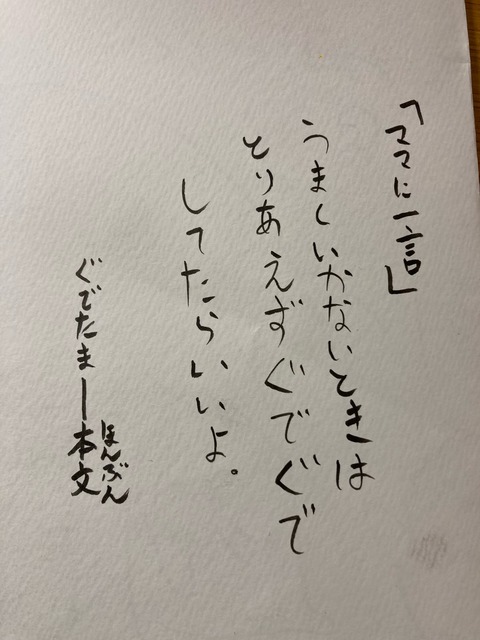 「ママに一言」
うまくいかないときは
とりあえずぐでぐで
してたらいいよ。
ぐでたまー本文
ほんぶん